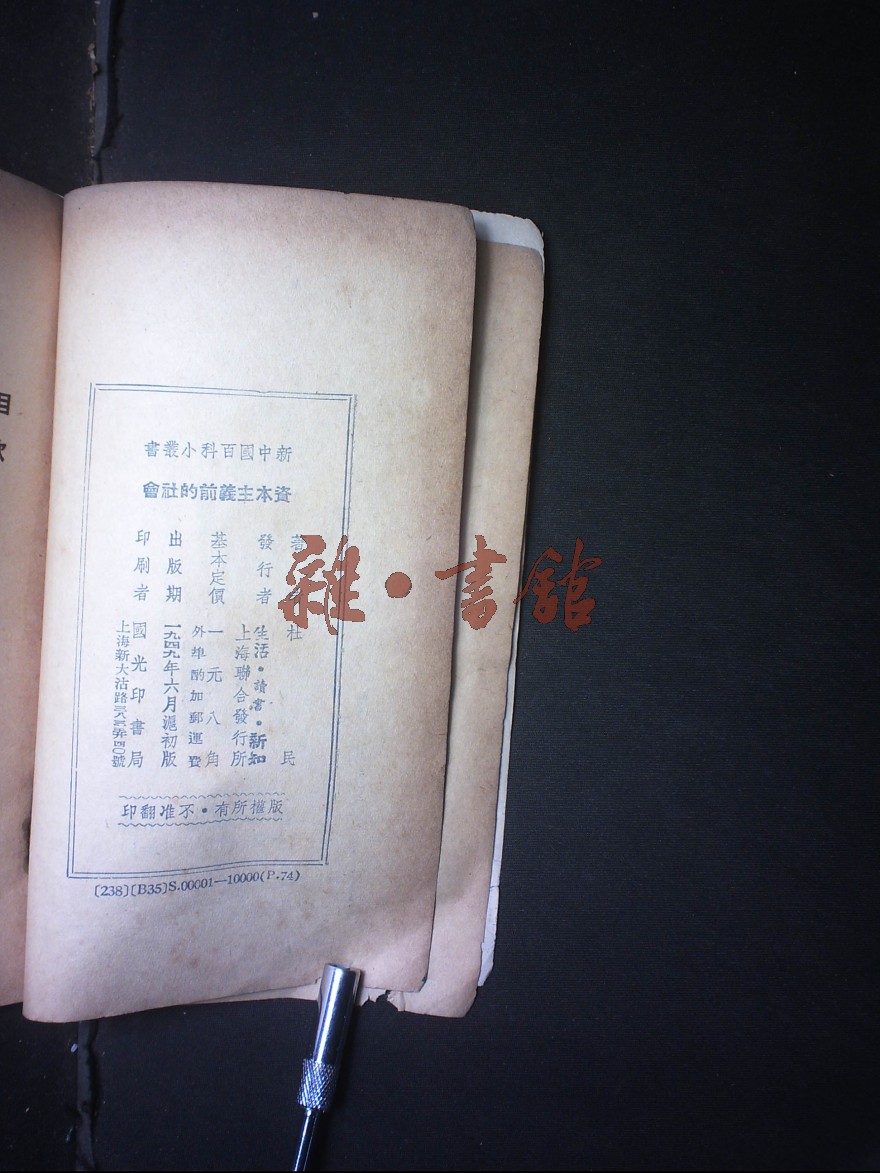 新中國百科小叢書
資本主義前的社會
著
杜民
發行者
生活·讀書·新知
上海聯合發行所
基本定價
一元八角
外埠酌加郵運費
出版期
一九四九年六月滬初版
印刷者
國光印書局
上海新大沽路
號
版權所有·不准翻印
[238][B35]S.00001—10000(P.74)
雜·書館
目